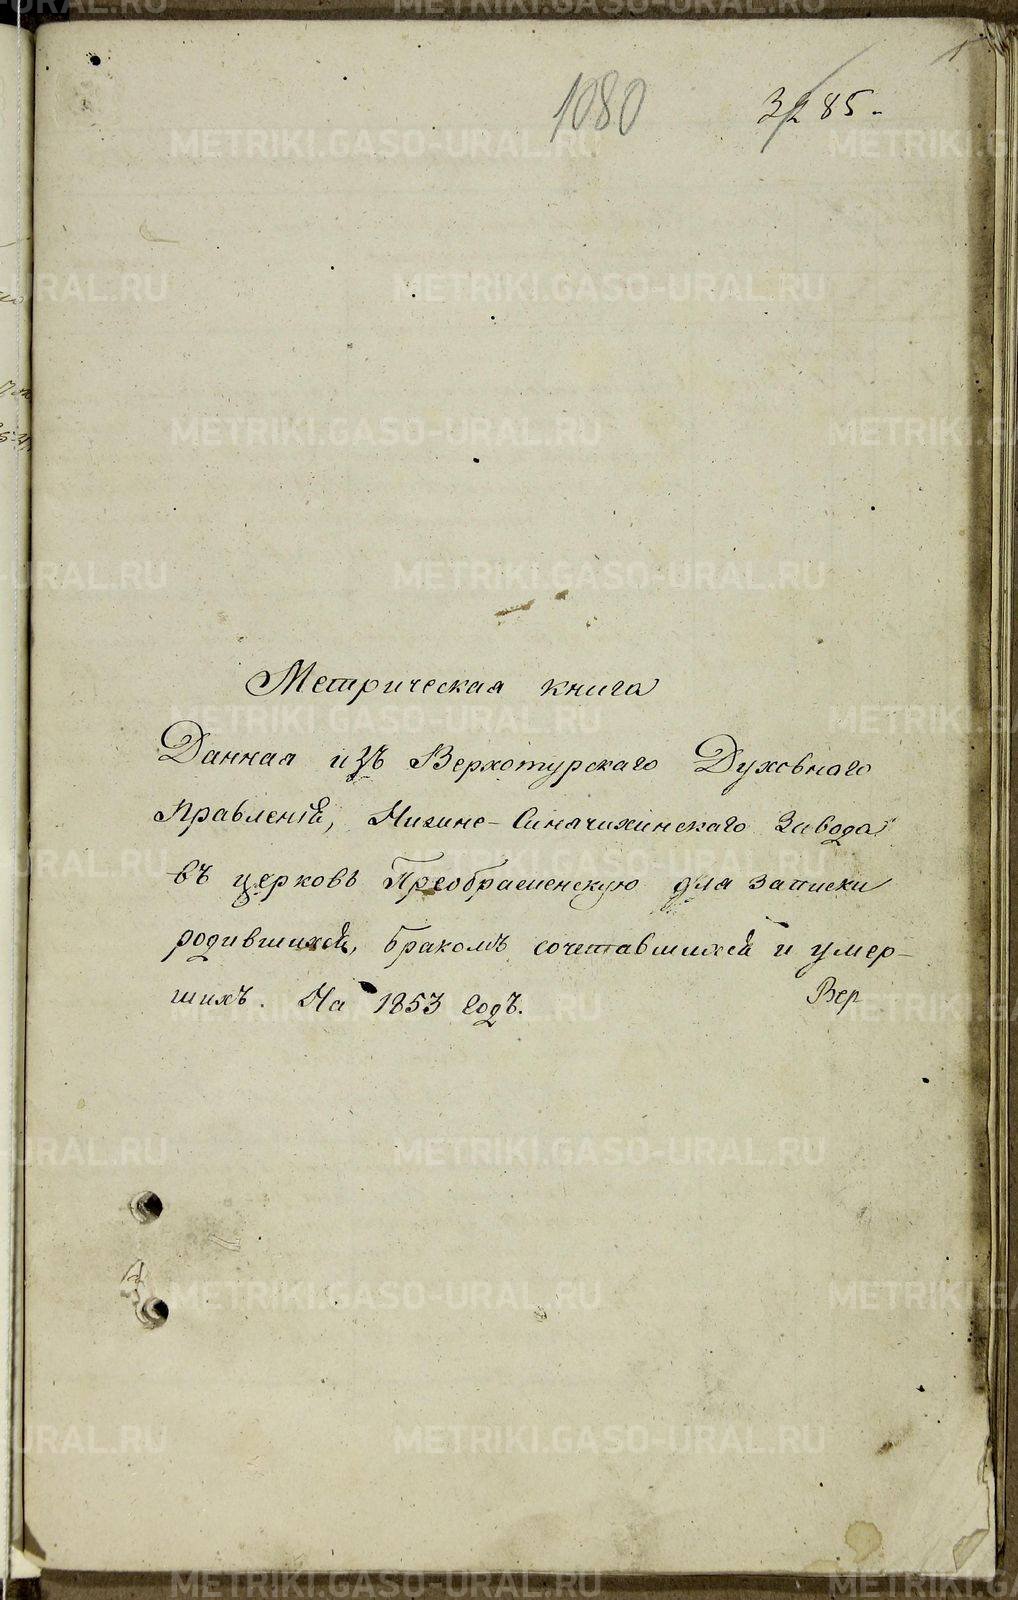 1080
3285.
1
Метрическая книга
Данная изъ Верхотурскаго Духовнаго
Правленія, Нижне-Синячихинскаго Завода
въ церковь Преображенскую для записки
родившихся, бракомъ сочетавшихся и умер-
шихъ. На 1853 годъ.
Вер
METRIKI.GASO-URAL.RU